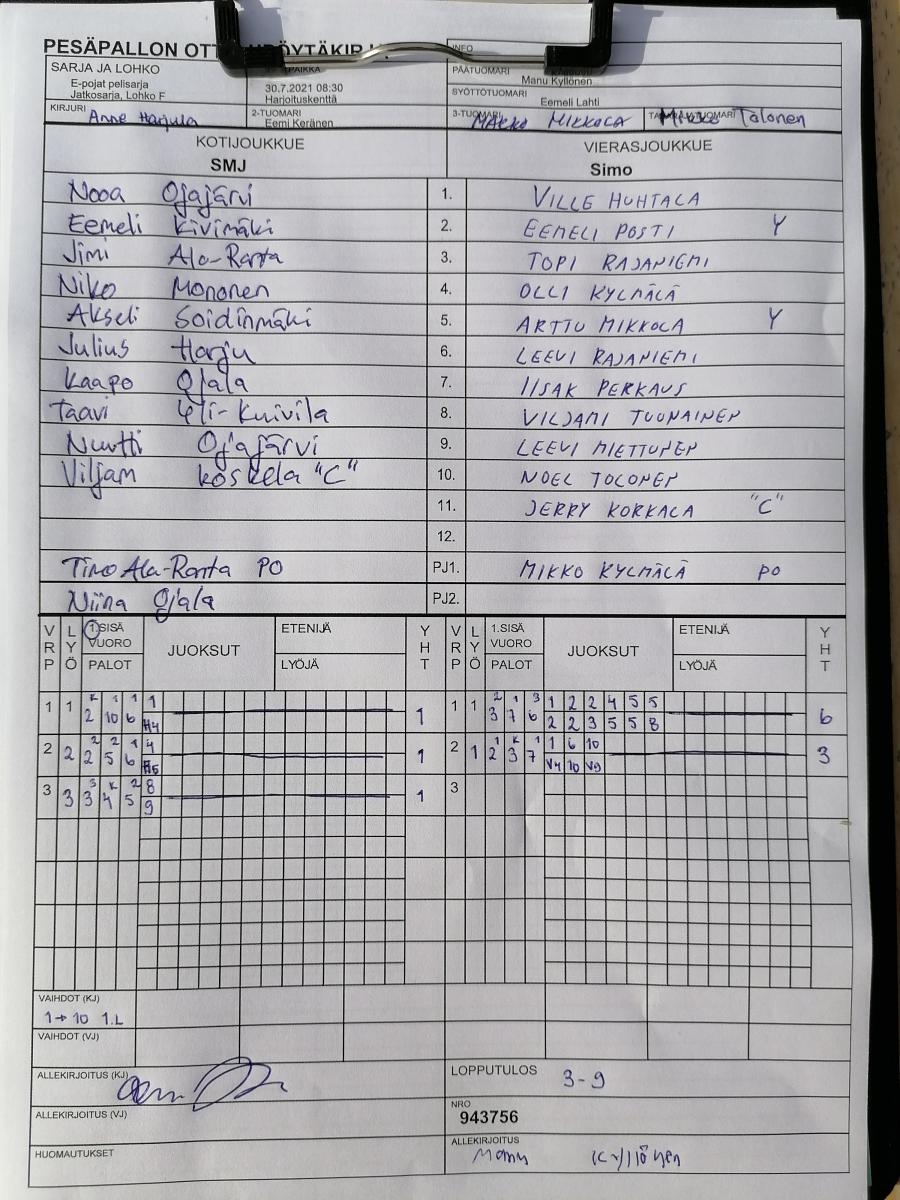 PESÄPALLON
INFO
SARJA JA LOHKO
E-pojat pelisarja
Jatkosarja, Lohko F
30.7.2021 08:30
Harjoituskenttä
PÄÄTUOMARI
Manu Kyllönen
SYÖTTÖTUOMARI
Eemeli Lahti
KIRJURI
Anne Harjula
2-TUOMARI
Eemi Keränen
3-TUOMARI
MIKKOLA
Talonen
KOTIJOUKKUE VIERASJOUKKUE
SMJ Simo
Nooa Ojajärvi 1. VILLE HUHTALA
Eemeli Kivimäki 2. EEMELI POSTI Y
Jimi Ala-Ranta 3. TOPI RAJANIEMI
Niko Mononen 4. OLLI KYLMÄLÄ
Akseli Soidinmäki 5. ARTTU MIKKOLA Y
Julius Harju 6. LEEVI RAJANIEMI
Kaapo Ojala 7. IISAK PERKAUS
Taavi Yli-Kuivila 8. VILJAMI TUOMAINEN
Nuutti Ojajärvi 9. LEEVI MIETTUNEN
Viljam Koskela "C" 10. NOEL TOLONEN
11. JERRY KORKALA "C"
12.
Timo Ala-Ranta PO PJ1. MIKKO KYLMÄLÄ PO
Niina Ojala PJ2.
VRP LYÖ 1.SISÄ VUORO PALOT JUOKSUT ETENIJÄ LYÖJÄ YHT VRP LYÖ 1.SISÄ VUORO PALOT JUOKSUT ETENIJÄ LYÖJÄ YHT
K 1 1 1 2 1 3 1 2 2 4 5 5
1 1 2 10 6 1 1 1 3 7 6 2 2 3 5 5 8 6
2 2 1 4 1 K 1 1 6 10
2 2 2 5 6 1 2 1 2 3 7 V4 10 V9 3
K 2 8
3 3 3 4 5 9 1 3
VAIHDOT (KJ)
1→10 1.L
VAIHDOT (VJ)
ALLEKIRJOITUS (KJ)
LOPPUTULOS
3-9
ALLEKIRJOITUS (VJ)
NRO
943756
HUOMAUTUKSET
ALLEKIRJOITUS